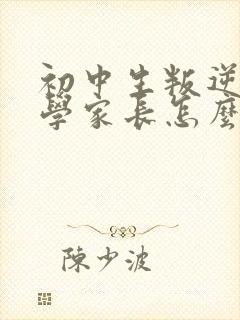 初中生叛逆
學家長怎麼
陳少波